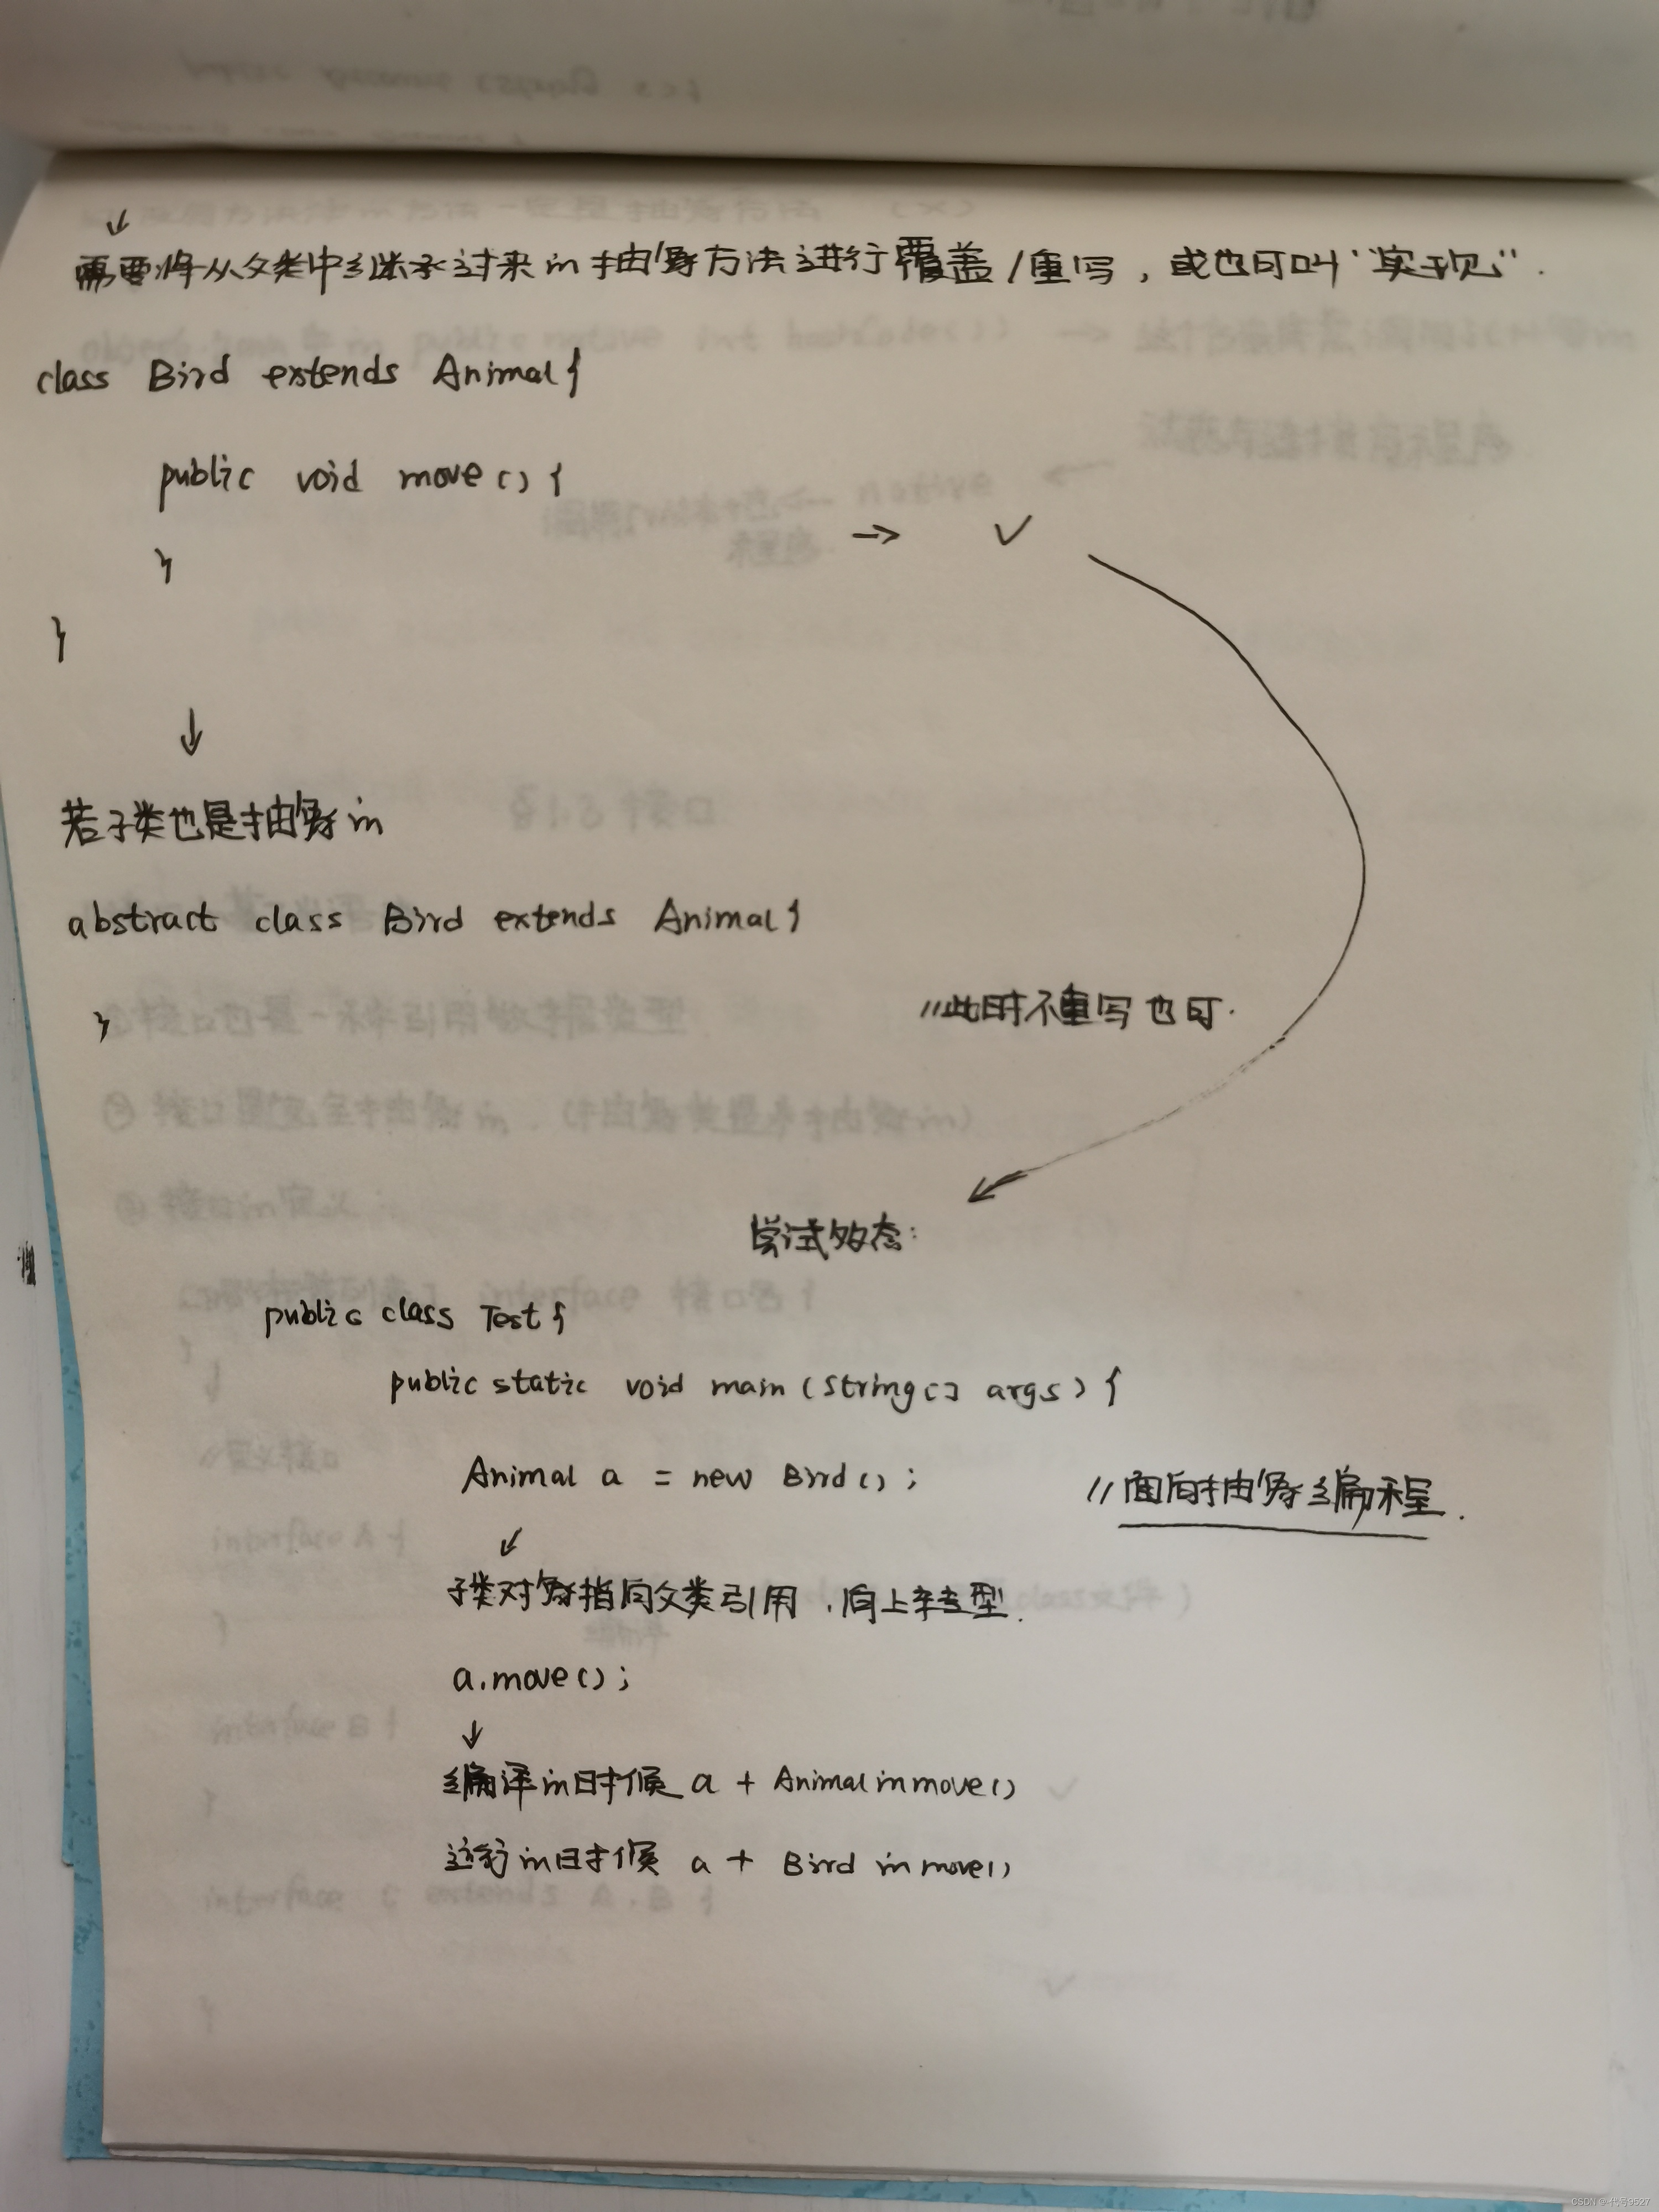 ↓
需要将从父类中继承过来in抽象方法进行覆盖/重写，或也可叫"实现".
class Bird extends Animal{
public void move() {
}
→ ✓
}
↓
若子类也是抽象in
abstract class Bird extends Animal{
//此时不重写也可.
}
尝试多态:
public class Test{
public static void main(String[] args) {
Animal a = new Bird(); //面向抽象编程.
↓
子类对象指向父类引用,向上转型.
a.move();
↓
编译in时候 a + Animal in move()
运行in时候 a + Bird in move()
CSDN @代号9527